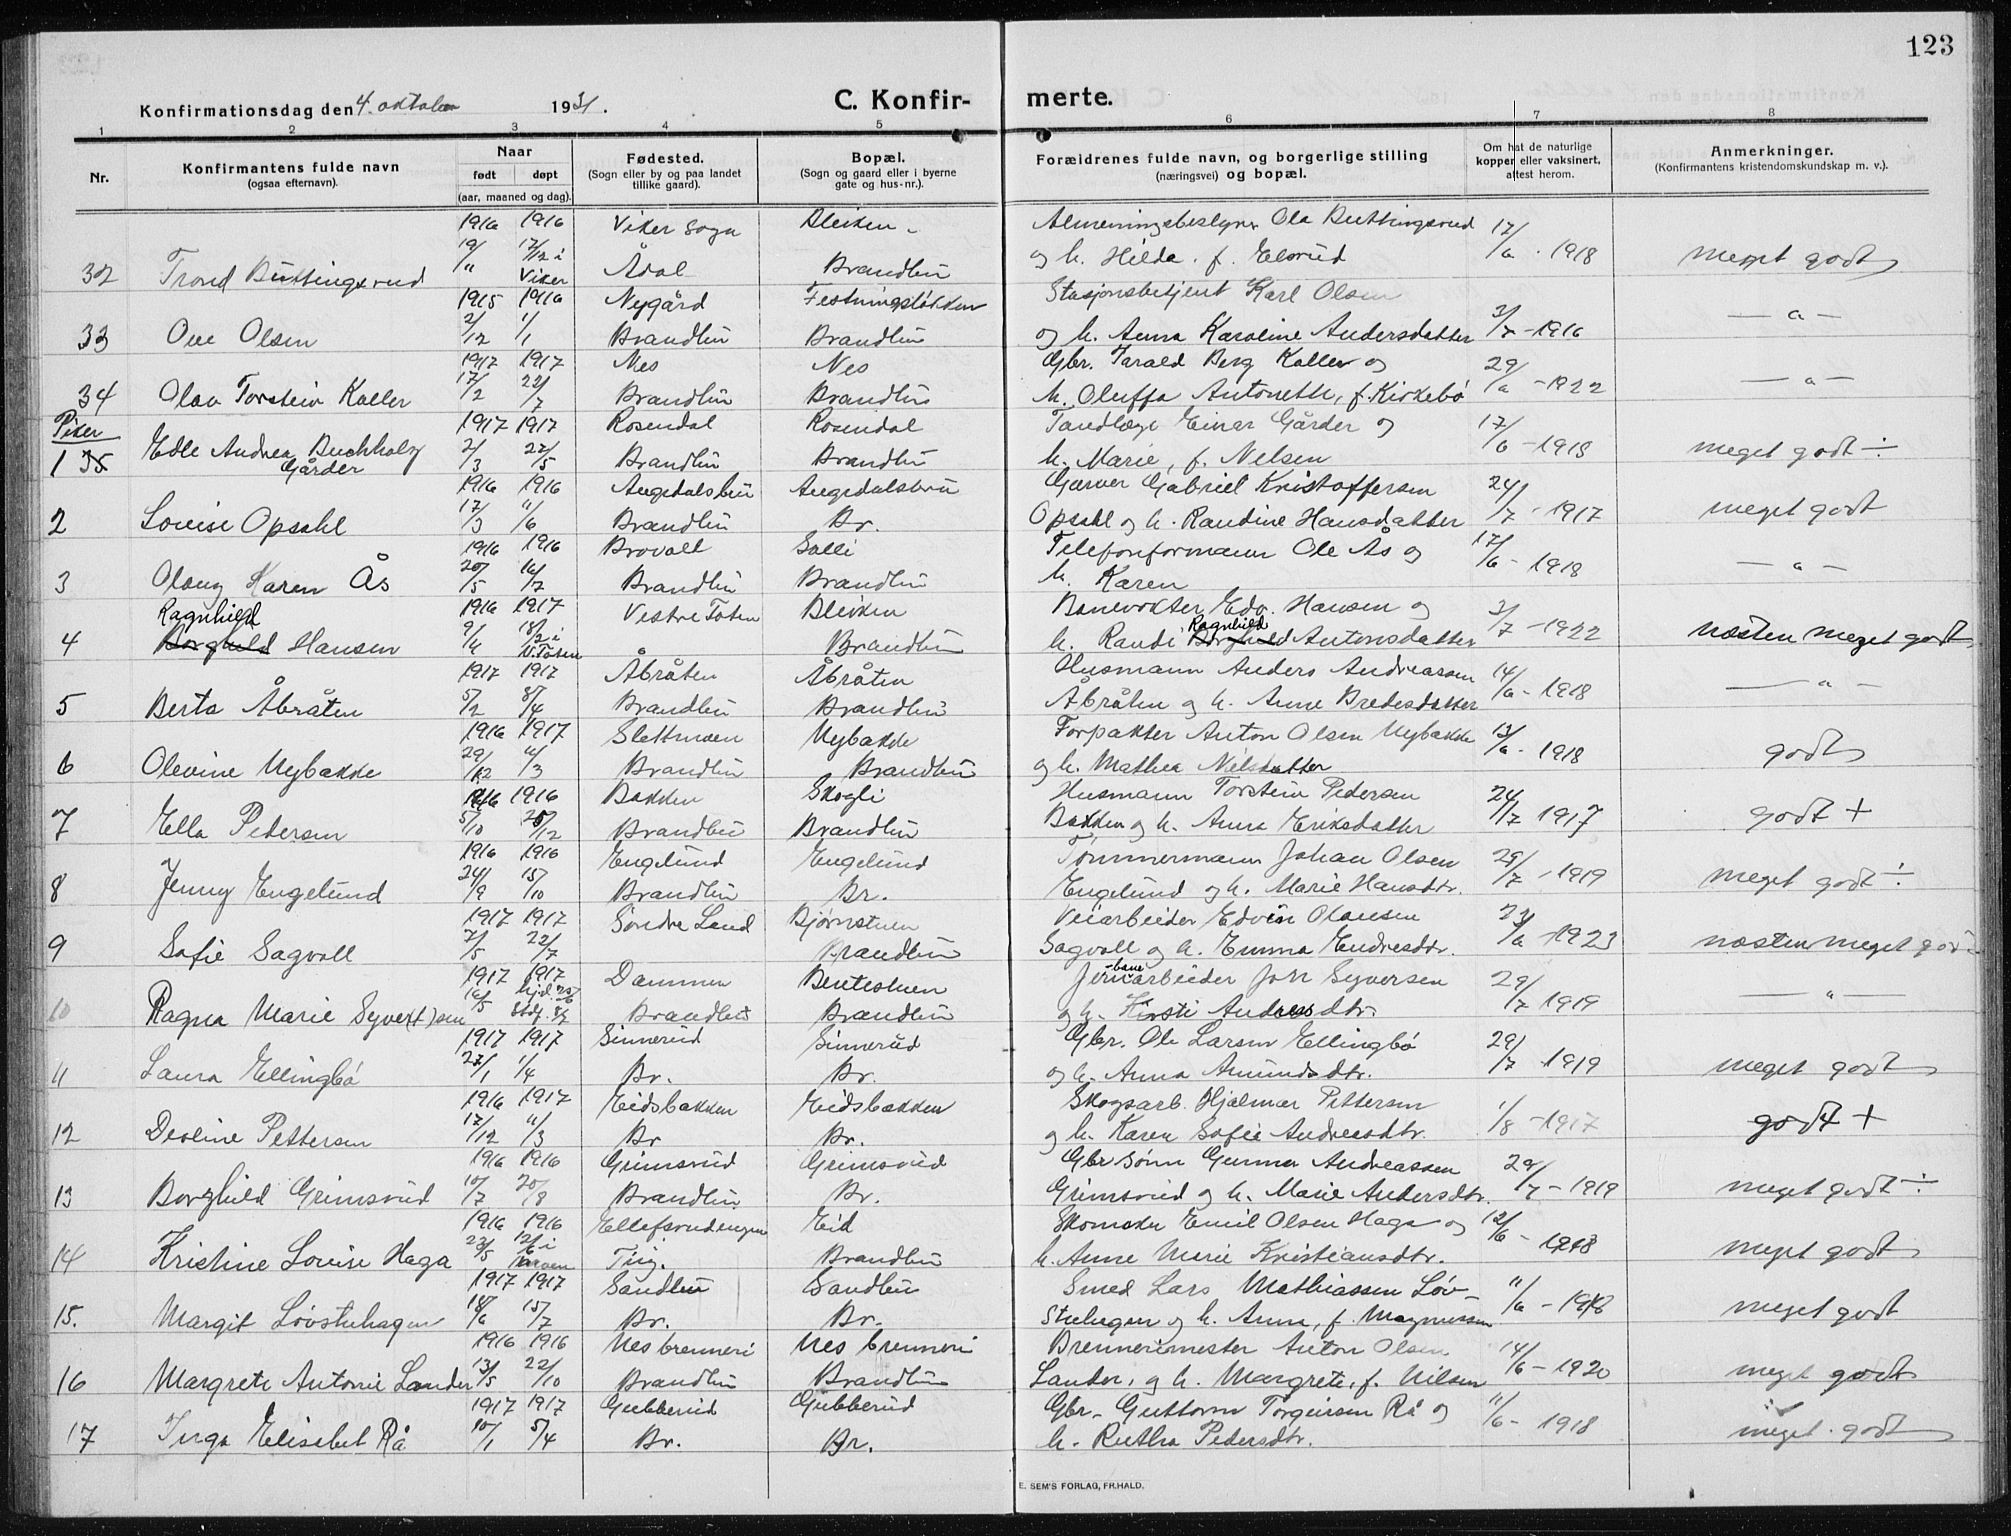 123
Konfirmationsdag den 4. oktober 1931.
C. Konfirmerte.
1 2 3 4 5 6 7 8
Nr.
Konfirmantens fulde navn
(ogsaa efternavn).
Naar
født døpt
(aar, maaned og dag).
Fødested.
(Sogn eller by og paa landet
tillike gaard).
Bopæl.
(Sogn og gaard eller i byerne
gate og hus-nr.).
Forældrenes fulde navn, og borgerlige stilling
(næringsvei) og bopæl.
Om hat de naturlige
kopper eller vaksinert,
attest herom.
Anmerkninger.
(Konfirmantens kristendomskundskap m. v.).
1916 1916 Viker sogn Bleiken. Ola Buttingsrud 17/6 - 1918
32 Trond Buttingsrud 19/11 17/12 i Viker Ådal Brandbu og h. Hilda. f. Elsrud meget godt
1915 1916 Nygård Festningsløkken Stasjonsbetjent Karl Olsen
33 Ove Olsen 2/12 1/1 Brandbu Brandbu og h. Anna Karoline Andersdatter 3/7 - 1916 — " —
1917 1917 Nes Nes Gbr. Harald Berg Koller og
34 Olav Torstein Koller 17/2 22/7 Brandbu Brandbu h. Oluffa Antonette, f. Kirkebö 29/6 - 1922 — " —
Piker 1917 1917 Rosendal Rosendal Tandlæge Einar Gårder og
1 35 Edle Andrea Buchholz Gårder 2/3 27/5 Brandbu Brandbu h. Marie, f. Nelsen 17/6 - 1918 meget godt ÷
1916 1916 Augedalsbru Augedalsbru Garver Gabriel Kristoffersen
2 Louise Opsahl 17/3 11/6 Brandbu Br. Opsahl og h. Randine Hansdatter 24/7 - 1917 meget godt
1916 1916 Brovoll Solli Telefonformann Ole Ås og
3 Olaug Karen Ås 20/5 16/7 Brandbu Brandbu h. Karen 17/6 - 1918 — " —
Ragnhild 1916 1917 Vestre Toten Bleiken Banevokter Edv. Hansen og
4 Borghild Hansen 9/4 18/2 i V. Toten Brandbu h. Randi Ragnhild Borghild Antonsdatter 3/7 - 1922 næsten meget godt
1917 1917 Åbråten Åbråten Husmann Anders Andreassen
5 Berta Åbråten 5/2 8/4 Brandbu Brandbu Åbråten og h. Anne Bredesdatter 14/6 - 1918 — " —
1916 1917 Slettmoen Nybakke Forpakter Anton Olsen Nybakke
6 Olevine Nybakke 29/12 11/3 Brandbu Brandbu og h. Mathea Nilsdatter 13/6 - 1918 godt
1916 1916 Bakken Skogli Husmann Torstein Pedersen
7 Ella Pedersen 5/10 26/12 Brandbu Brandbu Bakken og h. Anna Eriksdatter 24/7 1917 godt +
1916 1916 Engelund Engelund Tømmermann Johan Olsen
8 Jenny Engelund 24/9 15/10 Brandbu Br. Engelund og h. Marie Hansdtr. 29/7 - 1919 meget godt ÷
1917 1917 Søndre Land Bjørnstuen Veiarbeider Edvin Olausen
9 Sofie Sagvoll 2/5 22/7 Brandbu Sagvoll og h. Emma Endresdtr. - 1923 næsten meget godt
1917 1917 Dammen Bentestuen Jernbanearbeider Joh Syversen
10 Ragna Marie Syver(t)sen 16/5 Brandbu Brandbu og h. Kirsti Andersdtr. 29/7 1919 — " —
1917 1917 Sinnerud Sinnerud Gbr. Ole Larsen Ellingbö
11 Laura Ellingbö 27/1 1/4 Br. Br. og h. Anna Amundsdtr. 29/7 - 1919 meget godt
1916 1917 Eidsbakken Eidsbakken Skogsarb. Hjalmar Pettersen
12 Deoline Pettersen 17/12 11/3 Br Br. og h. Karen Sofie Andreasdtr. 1/8 - 1917 godt +
1916 1916 Grimsrud Grimsrud Gbr sønn Gunnar Andreassen
13 Borghild Grimsrud 10/7 20/8 Brandbu Br. Grimsrud og h. Marie Andersdtr. 29/7 - 1919 meget godt ÷
1916 1916 Ellefsrudengen Eid Skomaker Emil Olsen Haga og
14 Kristine Louise Haga 23/5 12/6 i Brandbu h. Anne Marie Kristiansdtr. 12/6 - 1918 meget godt
1917 1917 Sandbu Sandbu Smed Lars Mathiassen Løv-
15. Margit Løvstuhagen 18/6 15/7 Br. Br. Stuhagen og h. Anna, f. Magnussen 11/6 - 1918 meget godt
1916 1916 Nes brenneri Nes brenneri Brennerimester Anton Olsen
16 Margrete Antonie Lander 13/5 22/10 Brandbu Brandbu Lander. og h. Margrete. f. Nilsen 14/6 - 1920 meget godt
1917 1917 Gubberud Gubberud Gbr. Guttorm Torgeirsen Rå og
17 Inga Elisabet Rå 10/1 5/4 Br. Br. h. Rutha Pedersdtr. 11/6 - 1918 meget godt
E. SEM'S FORLAG, FR.HALD.